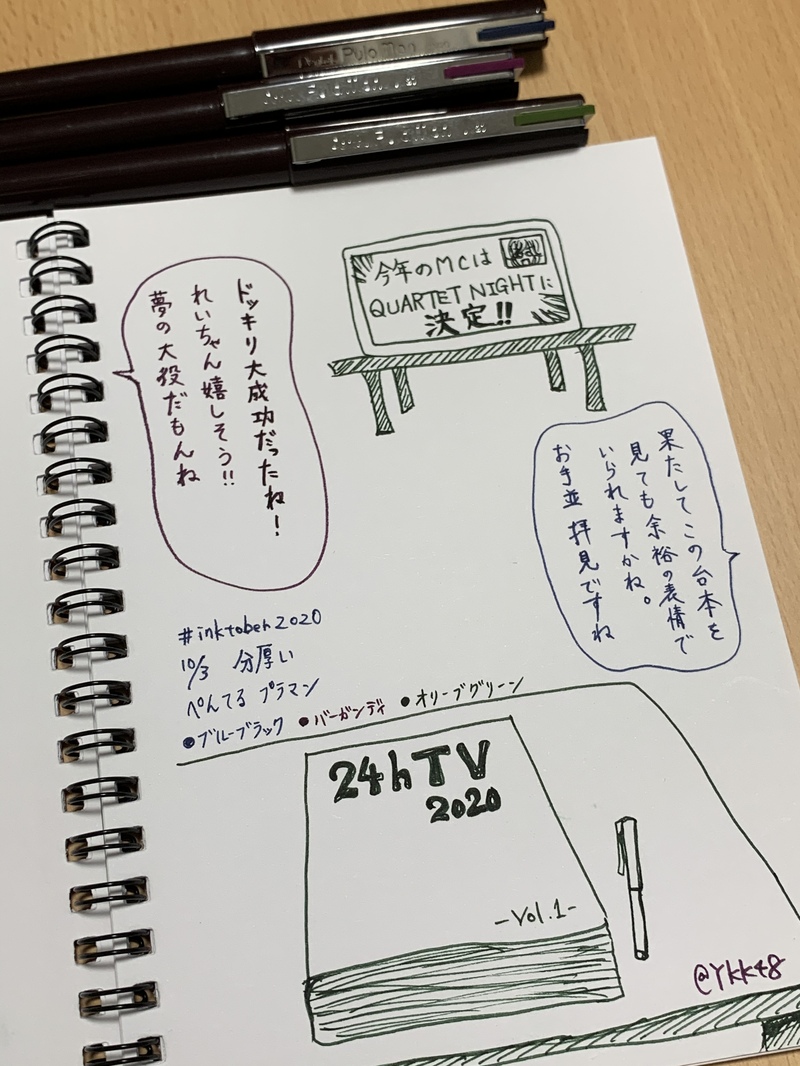 Pentel Pulaman
Pentel Pulaman JM20
Pentel Pulaman JM20
今年のMCは
QUARTET NIGHTに
決定!!
ドッキリ大成功だったね!
れいちゃん嬉しそう!!
夢の大役だもんね
果たしてこの台本を
見ても余裕の表情で
いられますかね。
お手並拝見ですね
#inktober2020
10/3 分厚い
ぺんてる プラマン
●ブルーブラック ●バーガンディ ●オリーブグリーン
24hTV
2020
-Vol.1-
@YKK48